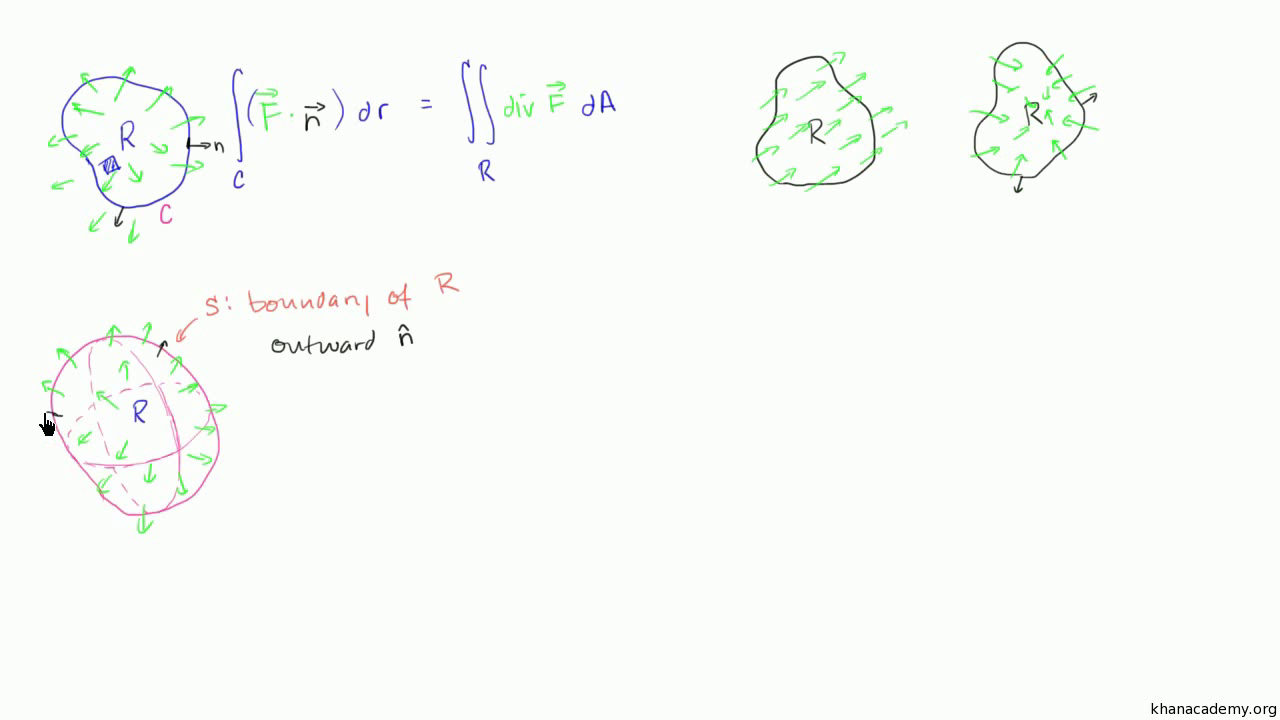 R
n
C
∫ (F⃗ · n⃗) dr = ∫∫ div F⃗ dA
C
R
R
R
S: boundary of R
outward n̂
R
khanacademy.org